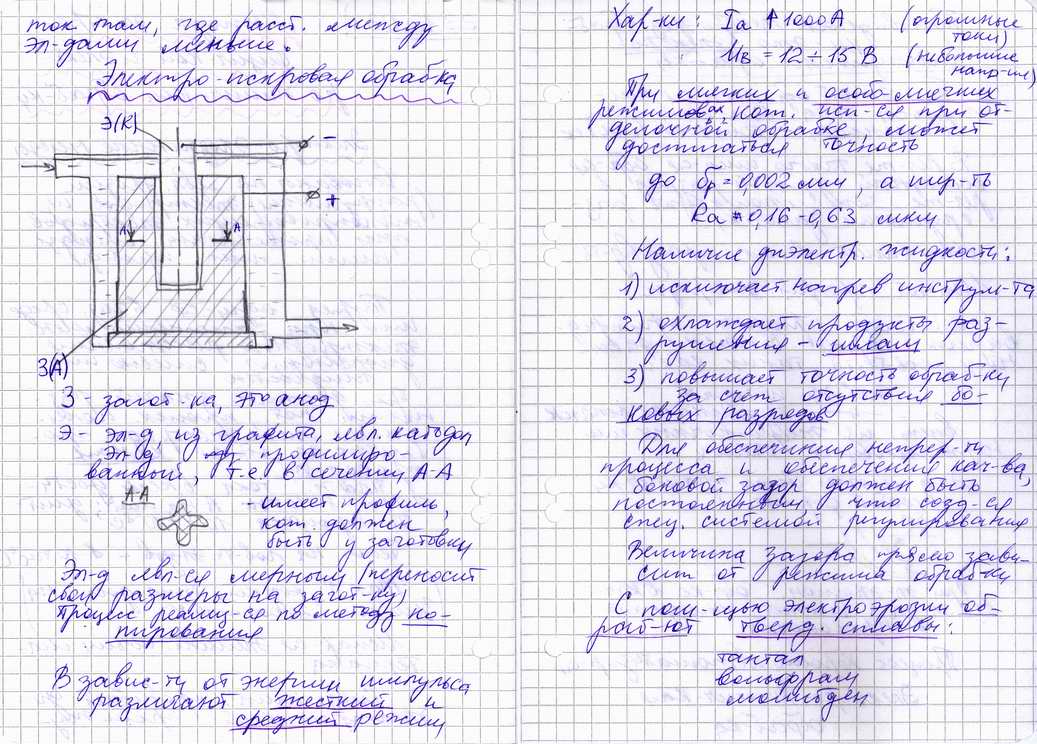 ток там, где расст. между
эл-дами меньше.
Электро-искровая обраб-ка
Э(К)
−
+
А А
З(А)
З - загот-ка, это анод
Э - эл-д, из графита, явл. катодом
Эл-д профилиро-
ванный, т.е. в сечении А-А
А-А
- имеет профиль,
кот. должен
быть у заготовки
Эл-д явл-ся мерным (переносит
свои размеры на загот-ку)
Процесс реализ-ся по методу ко-
пирования
В завис-ти от энергии импульса
различают жесткий и
средний режим
Хар-ки: Iа ↑ 1000А (огромные
токи)
Uв = 12 ÷ 15 В (небольшие
напр-ия)
При мягких и особо-мягких
режимах, кот. исп-ся при от-
делочной обрабке, может
достигаться точность
до δр = 0,002 мм, а шер-ть
Ra = 0,16 - 0,63 мкм
Наличие диэлектр. жидкости:
1) исключает нагрев инструм-та
2) охлаждает продукты раз-
рушения - шлам
3) повышает точность обраб-ки
за счет отсутствия бо-
ковых разрядов
Для обеспечения непрер-ти
процесса и обеспечения кач-ва,
боковой зазор должен быть
постоянным, что созд-ся
спец. системой регулирования
Величина зазора прямо зави-
сит от режима обраб-ки
С пом-щью электроэрозии об-
раб-ют тверд. сплавы:
тантал
вольфрам
молибден